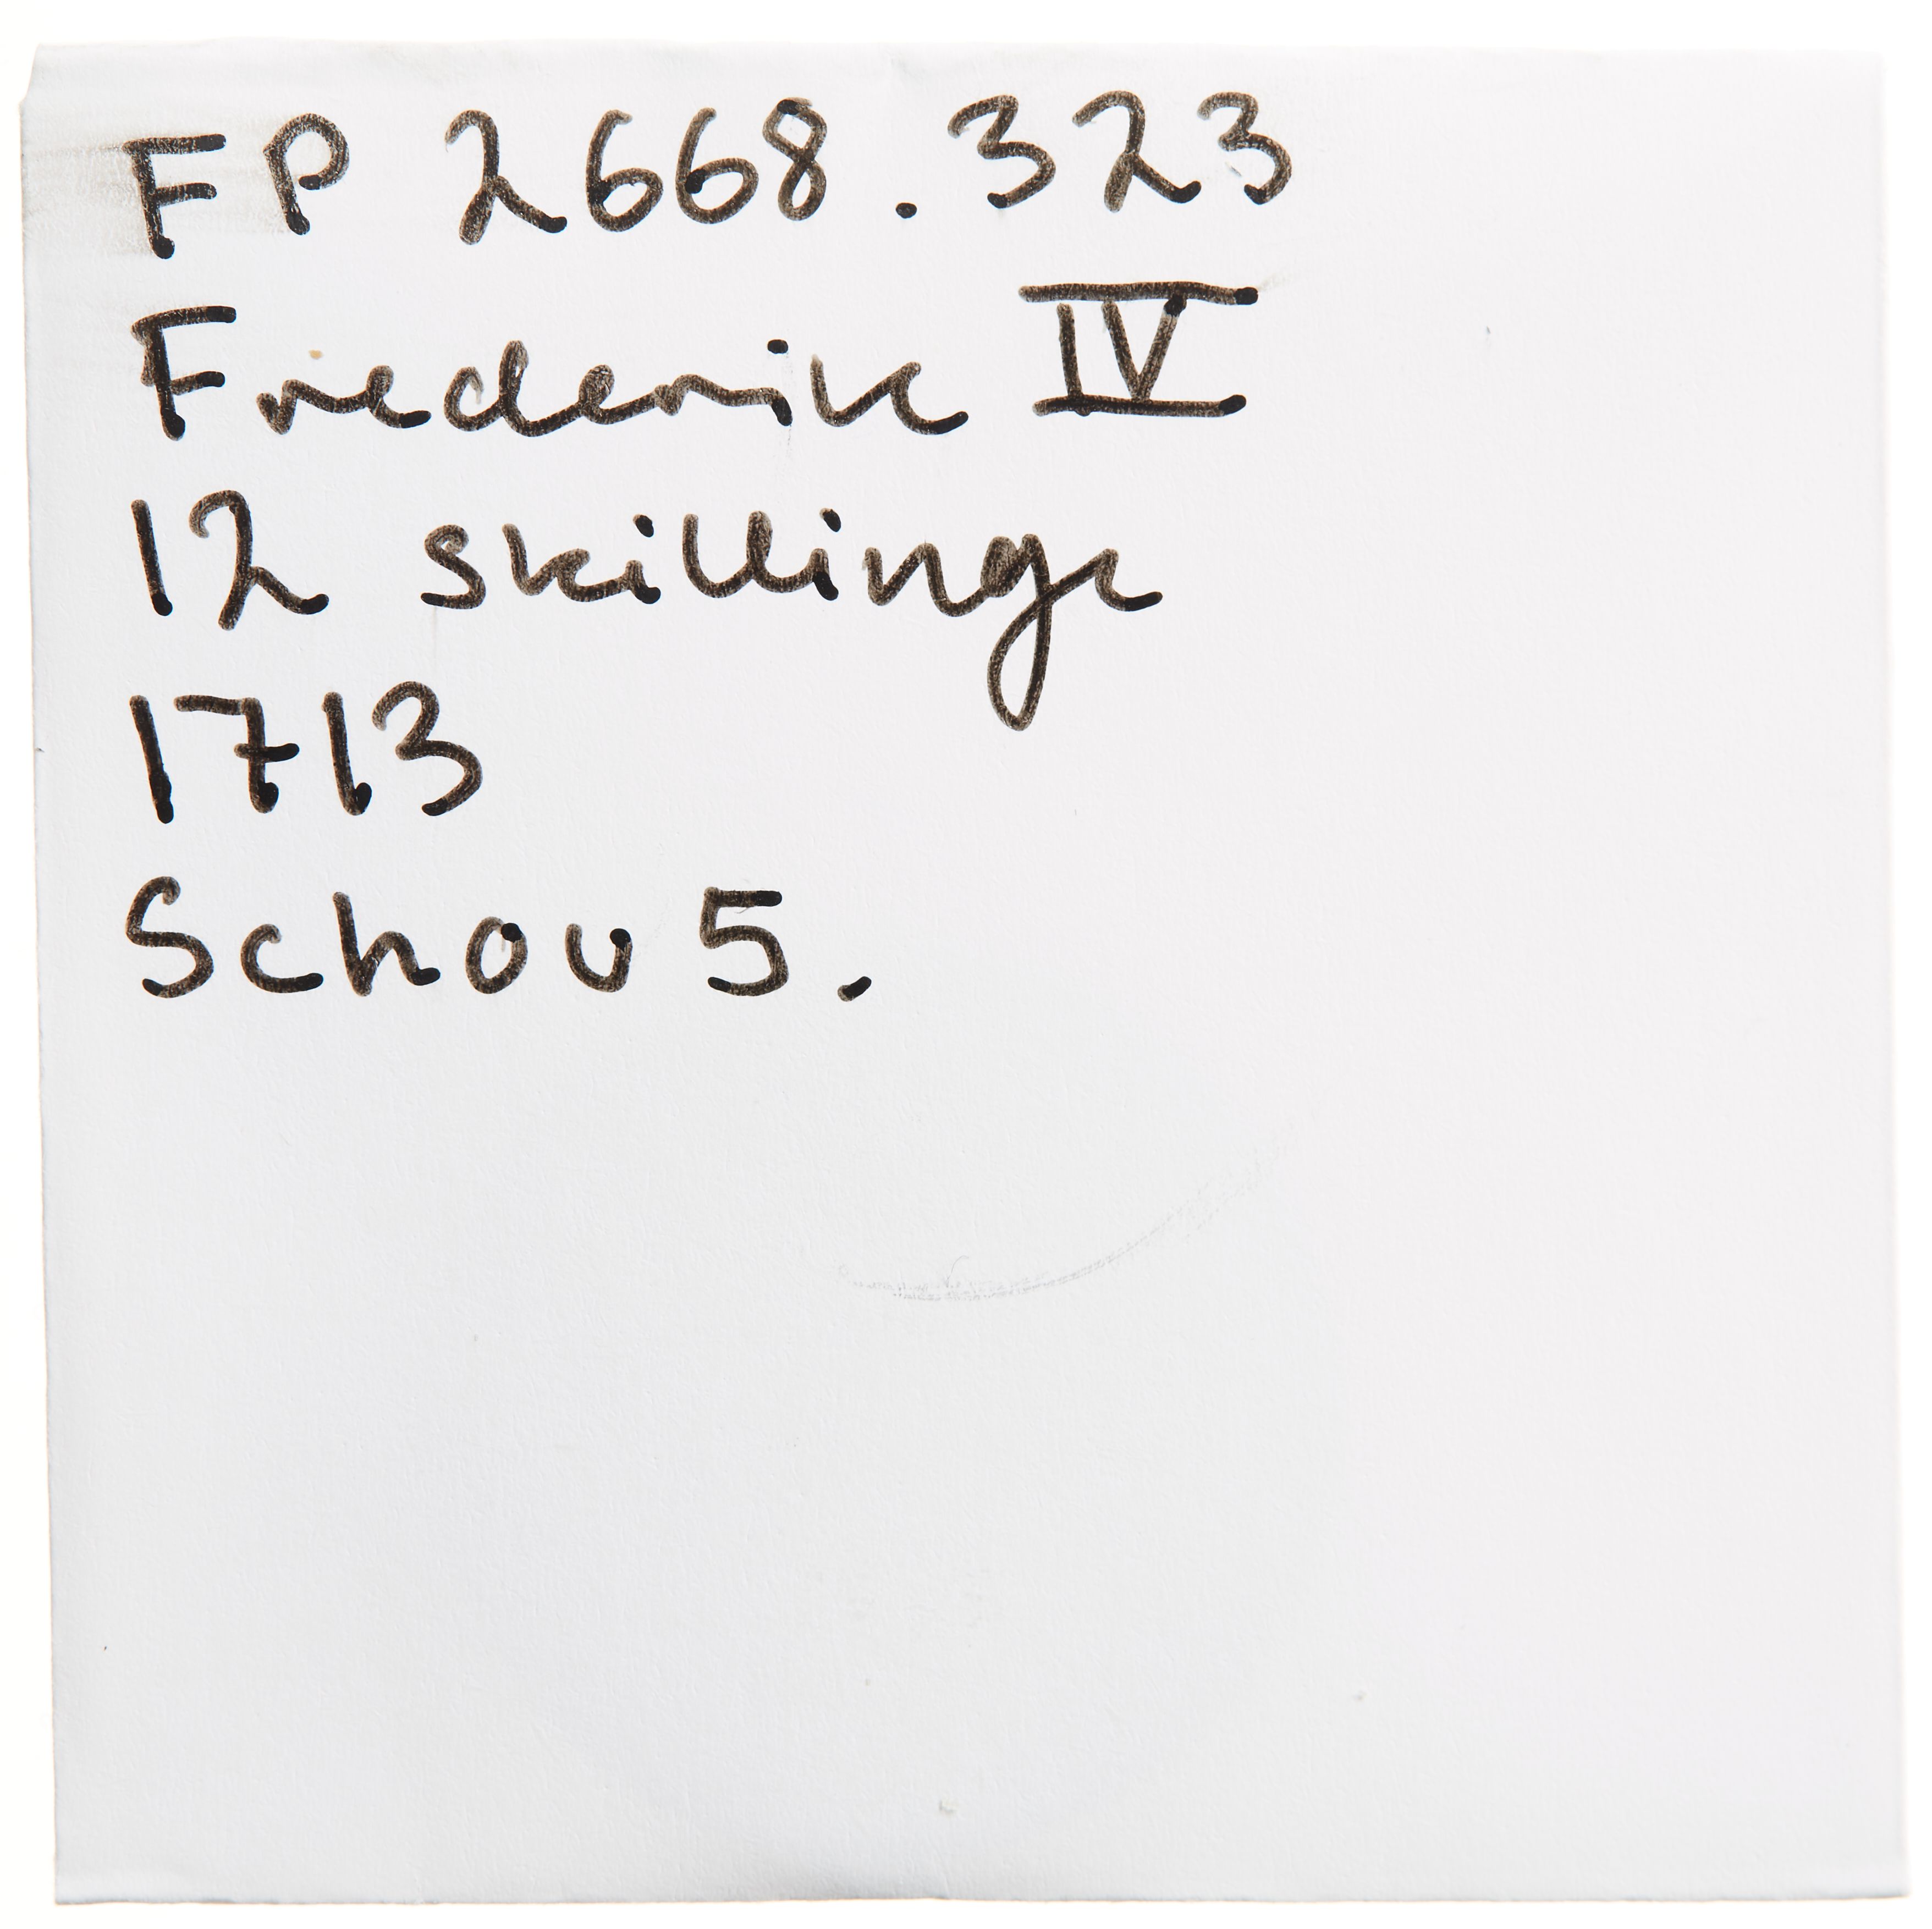 FP 2668.323
Frederik IV
12 skillinge
1713
Schou 5.